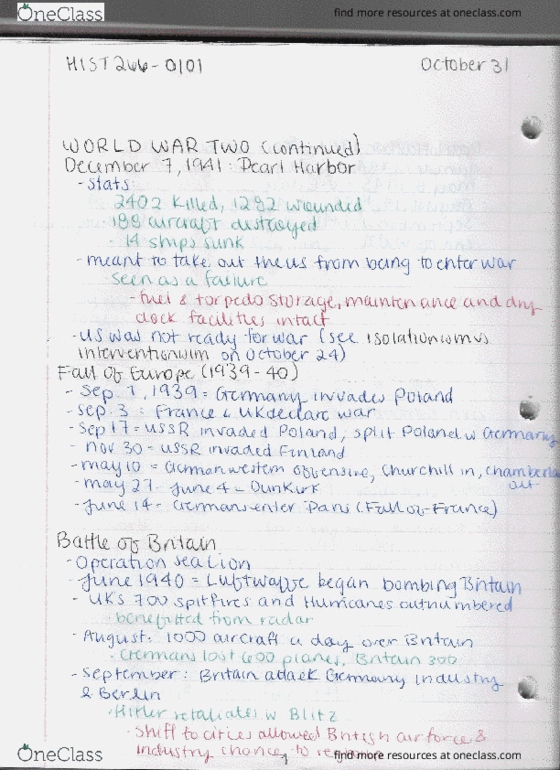 OneClass
find more resources at oneclass.com
HIST 266-0101 October 31
WORLD WAR TWO (continued)
December 7, 1941: Pearl Harbor
- stats
2402 killed, 1282 wounded
188 aircraft destroyed
14 ships sunk
- meant to take out the us from being to enter war
seen as a failure
- fuel & torpedo storage, maintenance and dry
dock facilities intact
- US was not ready for war (see isolationism vs
interventionism on October 24)
Fall of Europe (1939-40)
- Sep 1, 1939 = Germany invades Poland
- Sep 3: France & UK declare war
- Sep 17 = USSR invaded Poland, split Poland w Germany
- nov 30 - USSR invaded Finland
- may 10 = German western offensive, Churchill in, chamberla
out
- may 27 - June 4 - Dunkirk
- June 14 - Germans enter Paris (Fall of France)
Battle of Britain
- Operation sea lion
- June 1940 = Luftwaffe began bombing Britain
- UK's 700 spitfires and Hurricanes outnumbered
- benefitted from radar
- August: 1000 aircraft a day over Britain
- Germans lost 600 planes, Britain 300
- September: Britain attack Germany industry
& Berlin
- Hitler retaliates w Blitz
- shift to cities allowed British air force &
industry chance to
OneClass
find more resources at oneclass.com